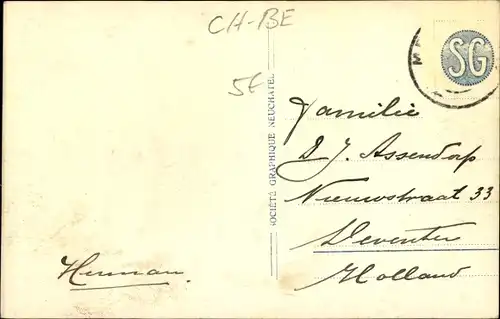 CH-BE
5E
SG
SOCIÉTÉ GRAPHIQUE NEUCHATEL
Familie
D J. Assendorp
Nieuwstraat 33
Deventer
Holland
Herman.